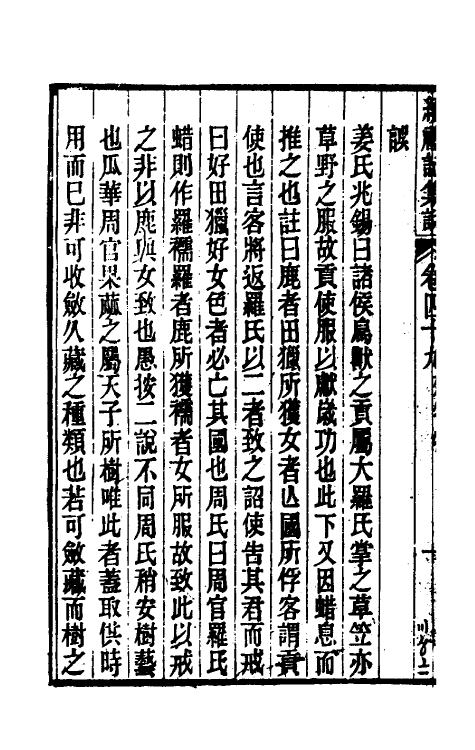 誤
姜氏兆錫曰諸侯鳥獸之貢屬大羅氏掌之草笠亦
草野之服故貢使服以獻歲功也此下又因蜡息而
推之也註曰鹿者田獵所獲女者亾國所俘客謂貢
使也言客將返羅氏以二者致之詔使告其君而戒
曰好田獵好女色者必亡其國也周氏曰周官羅氏
蜡則作羅襦羅者鹿所獲襦者女所服故致此以戒
之非以鹿與女致也愚按二說不同周氏稍安樹藝
也瓜華周官果蓏之屬天子所樹唯此者蓋取供時
用而已非可收斂久藏之種類也若可斂藏而樹之